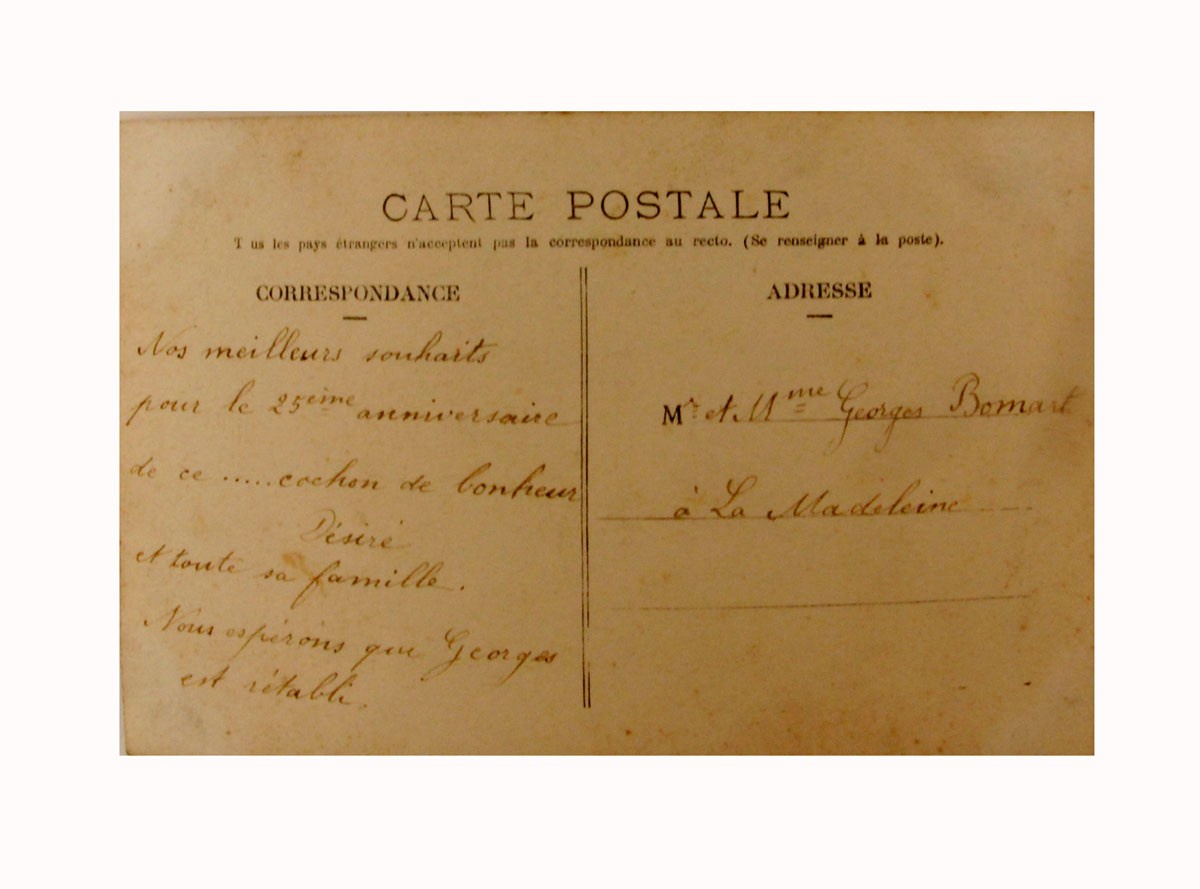 CARTE POSTALE
T us les pays étrangers n'acceptent pas la correspondance au recto. (Se renseigner à la poste).
CORRESPONDANCE
Nos meilleurs souhaits
pour le 25ème anniversaire
de ce .....cochon de bonheur
Désiré
et toute sa famille.
Nous espérons que Georges
est rétabli.
ADRESSE
Mr et Mme Georges Bomart
à La Madeleine